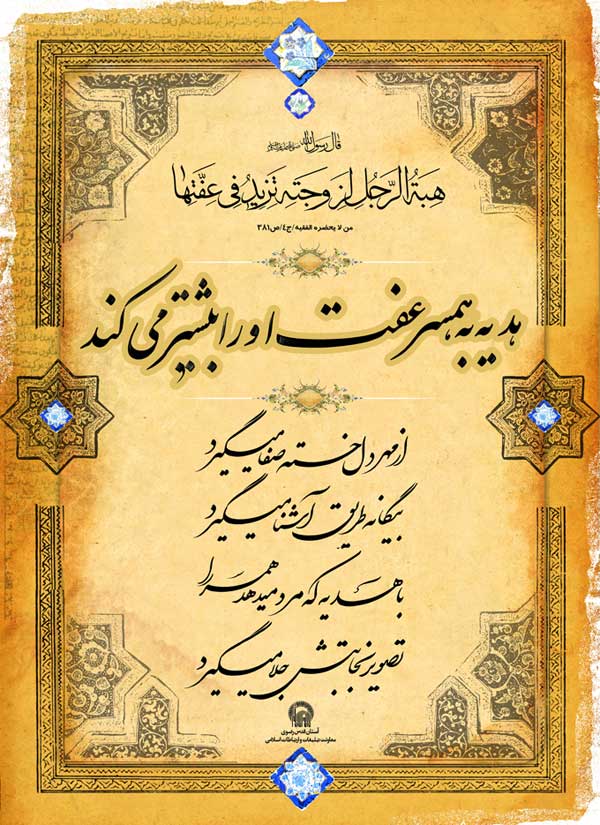 قال رسول الله صلی الله علیه و آله
هِبَةُ الرَّجُلِ لِزَوجَتِهِ تَزیدُ فی عِفَّتِها
من لا یحضره الفقیه/ج٤/ص٣٨١
هدیه به همسر عفت او را بیشتر می کند
از مهر دل خسته صفا میگیرد
بیگانه طریق آشنا میگیرد
با هدیه که مرد میدهد همسر را
تصویر نجابتش جلا میگیرد
آستان قدس رضوی
معاونت تبلیغات و ارتباطات اسلامی